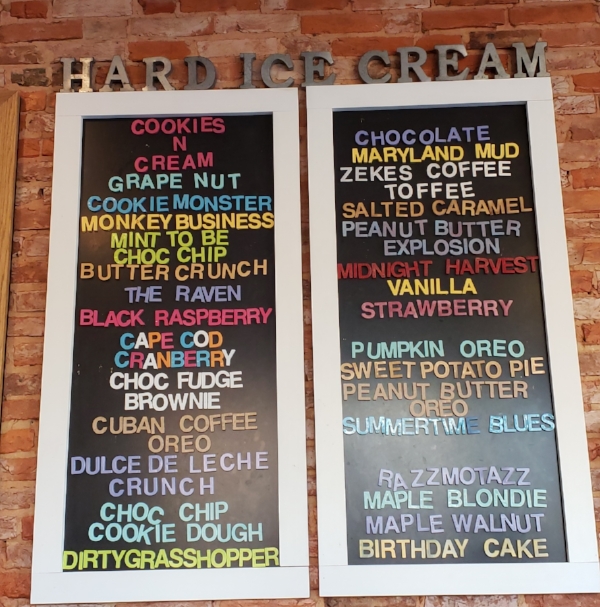 HARD ICE CREAM
COOKIES
N
CREAM
GRAPE NUT
COOKIE MONSTER
MONKEY BUSINESS
MINT TO BE
CHOC CHIP
BUTTER CRUNCH
THE RAVEN
BLACK RASPBERRY
CAPE COD
CRANBERRY
CHOC FUDGE
BROWNIE
CUBAN COFFEE
OREO
DULCE DE LECHE
CRUNCH
CHOC CHIP
COOKIE DOUGH
DIRTYGRASSHOPPER
CHOCOLATE
MARYLAND MUD
ZEKES COFFEE
TOFFEE
SALTED CARAMEL
PEANUT BUTTER
EXPLOSION
MIDNIGHT HARVEST
VANILLA
STRAWBERRY
PUMPKIN OREO
SWEET POTATO PIE
PEANUT BUTTER
OREO
SUMMERTIME BLUES
RAZZMOTAZZ
MAPLE BLONDIE
MAPLE WALNUT
BIRTHDAY CAKE